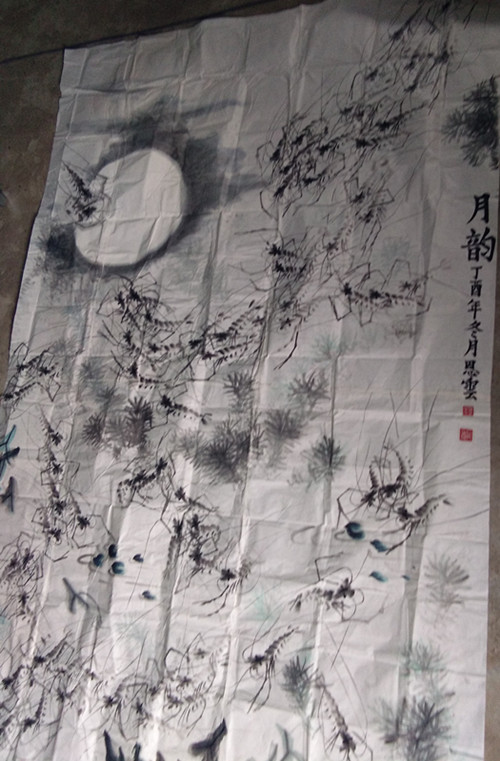 月韵
丁酉年冬月恩雲